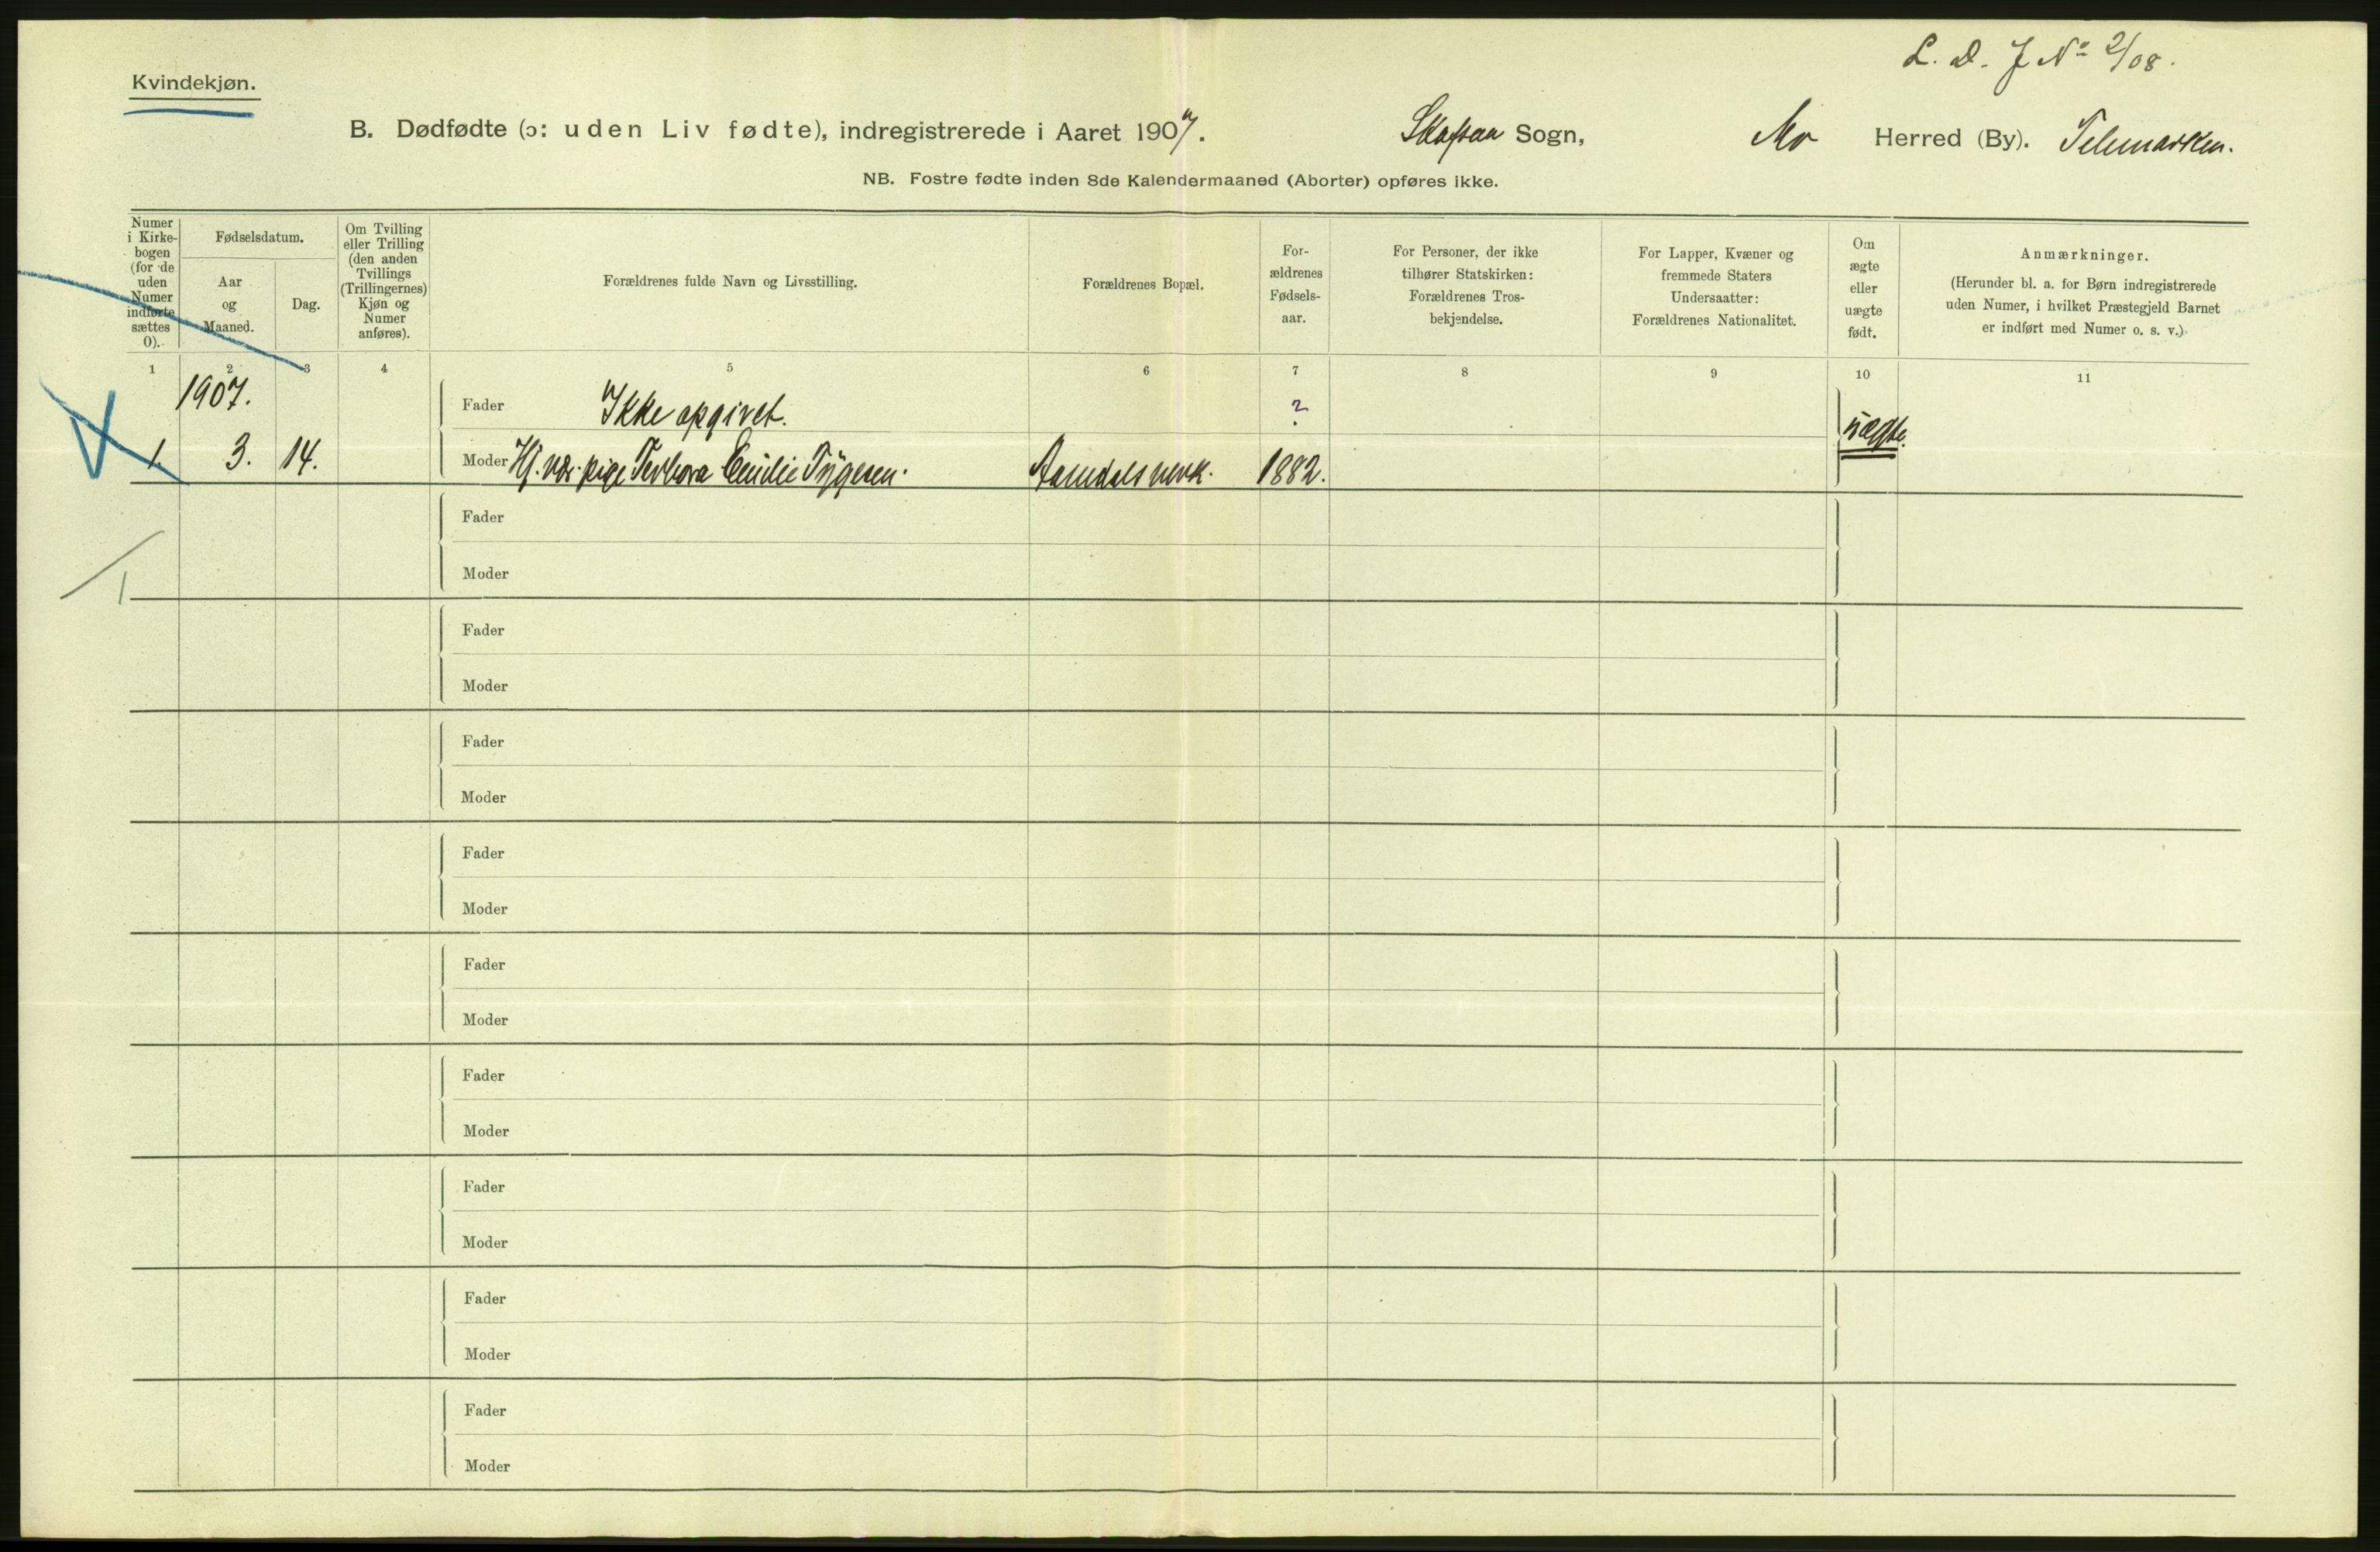 L. D. J No 2/08.
Kvindekjøn.
B. Dødfødte (ɔ: uden Liv fødte), indregistrerede i Aaret 1907. Skafsaa Sogn, Mo Herred (By). Telemarken.
NB. Fostre fødte inden 8de Kalendermaaned (Aborter) opføres ikke.
Numer i Kirke-bogen (for de uden Numer indførte sættes 0).
Fødselsdatum.
Aar og Maaned.
Dag.
Om Tvilling eller Trilling (den anden Tvillings (Trillingernes) Kjøn og Numer anføres).
Forældrenes fulde Navn og Livsstilling.
Forældrenes Bopæl.
For-ældrenes Fødsels-aar.
For Personer, der ikke tilhører Statskirken: Forældrenes Tros-bekjendelse.
For Lapper, Kvæner og fremmede Staters Undersaatter: Forældrenes Nationalitet.
Om ægte eller uægte født.
Anmærkninger.
(Herunder bl. a. for Børn indregistrerede uden Numer, i hvilket Præstegjeld Barnet er indført med Numer o. s. v.)
1 2 3 4 5 6 7 8 9 10 11
1907.
Fader Ikke opgivet. ?
uægte.
1. 3. 14. Moder Hj. vær. pige Emilie Aamdals verk. 1882.
Fader
1
Moder
Fader
Moder
Fader
Moder
Fader
Moder
Fader
Moder
Fader
Moder
Fader
Moder
Fader
Moder
Fader
Moder